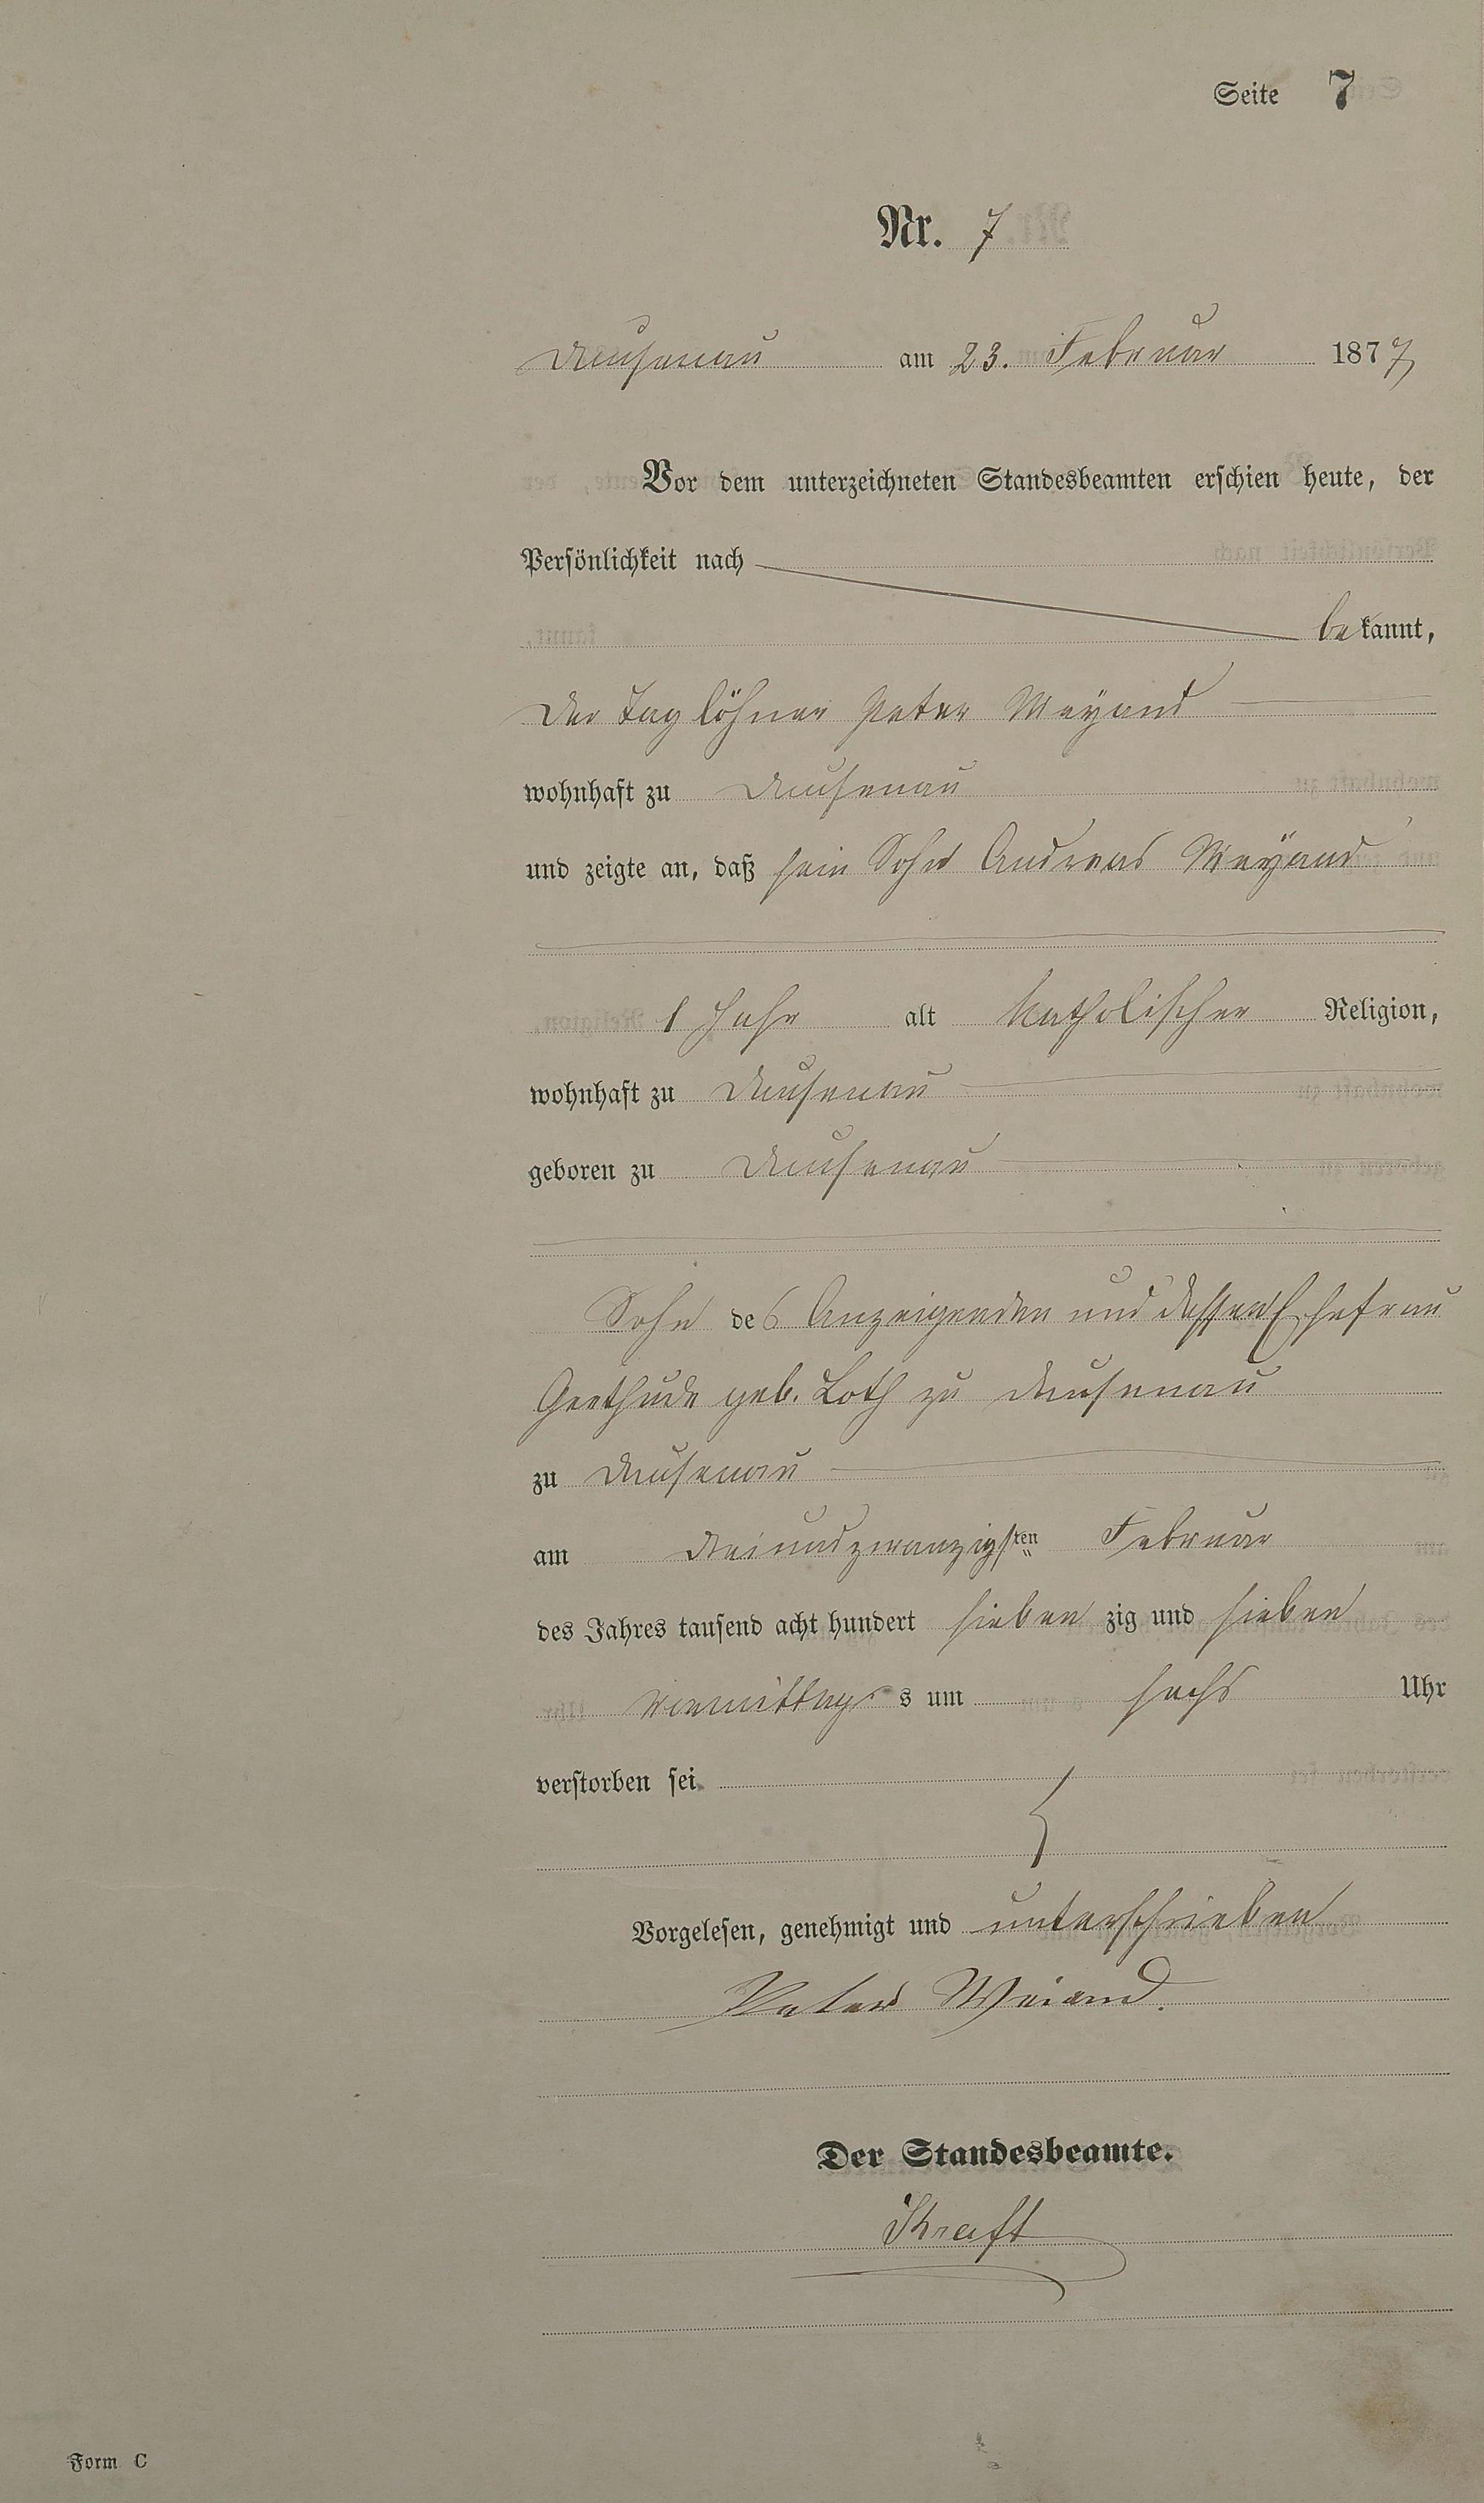 Seite 7
Nr. 7
Dausenau am 23. Februar 1877
Vor dem unterzeichneten Standesbeamten erschien heute, der
Persönlichkeit nach
bekannt,
der Taglöhner Peter Weyand
wohnhaft zu Dausenau
und zeigte an, daß sein Sohn Andreas Weyand
1 Jahr alt katholischer Religion,
wohnhaft zu Dausenau
geboren zu Dausenau
Sohn des Anzeigenden und dessen Ehefrau
geb. Loth zu Dausenau
zu Dausenau
am dreiundzwanzigsten Februar
des Jahres tausend acht hundert siebenzig und sieben
Vormittags um sechs Uhr
verstorben sei
Vorgelesen, genehmigt und unterschrieben
Peter Weiand.
Der Standesbeamte.
Kraft
Form C